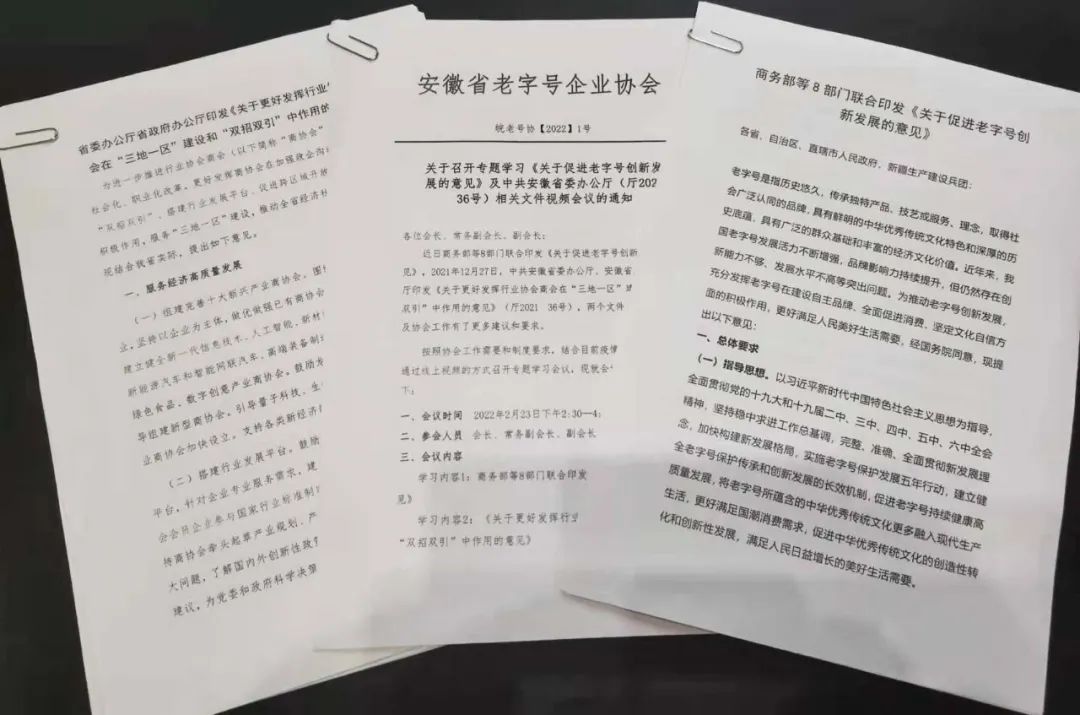 省委办公厅省政府办公厅印发《关于更好发挥行业
会在“三地一区”建设和“双招双引”中作用的
为进一步推进行业协会商会（以下简称“商协会”
社会化、职业化改革，更好发挥商协会在加强政企沟
“双招双引”、搭建行业发展平台、促进跨区域开放
积极作用，服务“三地一区”建设，推动全省经济社
现结合我省实际，提出如下意见。
一、服务经济高质量发展
（一）组建完善十大新兴产业商协会。围
业，坚持以企业为主体，做优做强已有商协会
建立健全新一代信息技术、人工智能、新材
新能源汽车和智能网联汽车、高端装备制
绿色食品、数字创意产业商协会。鼓励
导组建新型商协会，引导量子科技、生
业商协会加快设立，支持各类新经济
（二）搭建行业发展平台。鼓励
平台，针对企业专业服务需求，建
会会员企业参与国家行业标准制
持商协会牵头起草产业规划、产
大问题，了解国内外创新性政
建议，为党委和政府科学决策
安徽省老字号企业协会
皖老号协【2022】1号
关于召开专题学习《关于促进老字号创新发
展的意见》及中共安徽省委办公厅（厅202
36号）相关文件视频会议的通知
各位会长、常务副会长、副会长：
近日商务部等8部门联合印发《关于促进老字号创新
见》，2021年12月27日，中共安徽省委办公厅、安徽省
厅印发《关于更好发挥行业协会商会在“三地一区”
双引”中作用的意见》（厅2021 36号），两个文件
及协会工作有了更多建议和要求。
按照协会工作需要和制度要求，结合目前疫情
通过线上视频的方式召开专题学习会议，现就会
下：
一、会议时间 2022年2月23日下午2:30—4:
二、参会人员 会长、常务副会长、副会长
三、会议内容
学习内容1：商务部等8部门联合印发
见》
学习内容2：《关于更好发挥行业
“双招双引”中作用的意见》
商务部等8部门联合印发《关于促进老字号创
新发展的意见》
各省、自治区、直辖市人民政府，新疆生产建设兵团：
老字号是指历史悠久，传承独特产品、技艺或服务、理念，取得社
会广泛认同的品牌，具有鲜明的中华优秀传统文化特色和深厚的历
史底蕴，具有广泛的群众基础和丰富的经济文化价值。近年来，我
国老字号发展活力不断增强，品牌影响力持续提升，但仍然存在创
新能力不够、发展水平不高等突出问题。为推动老字号创新发展，
充分发挥老字号在建设自主品牌、全面促进消费、坚定文化自信方
面的积极作用，更好满足人民美好生活需要，经国务院同意，现提
出以下意见：
一、总体要求
（一）指导思想。以习近平新时代中国特色社会主义思想为指导，
全面贯彻党的十九大和十九届二中、三中、四中、五中、六中全会
精神，坚持稳中求进工作总基调，完整、准确、全面贯彻新发展理
念，加快构建新发展格局，实施老字号保护发展五年行动，建立健
全老字号保护传承和创新发展的长效机制，促进老字号持续健康高
质量发展，将老字号所蕴含的中华优秀传统文化更多融入现代生产
生活，更好满足国潮消费需求，促进中华优秀传统文化的创造性转
化和创新性发展，满足人民日益增长的美好生活需要。